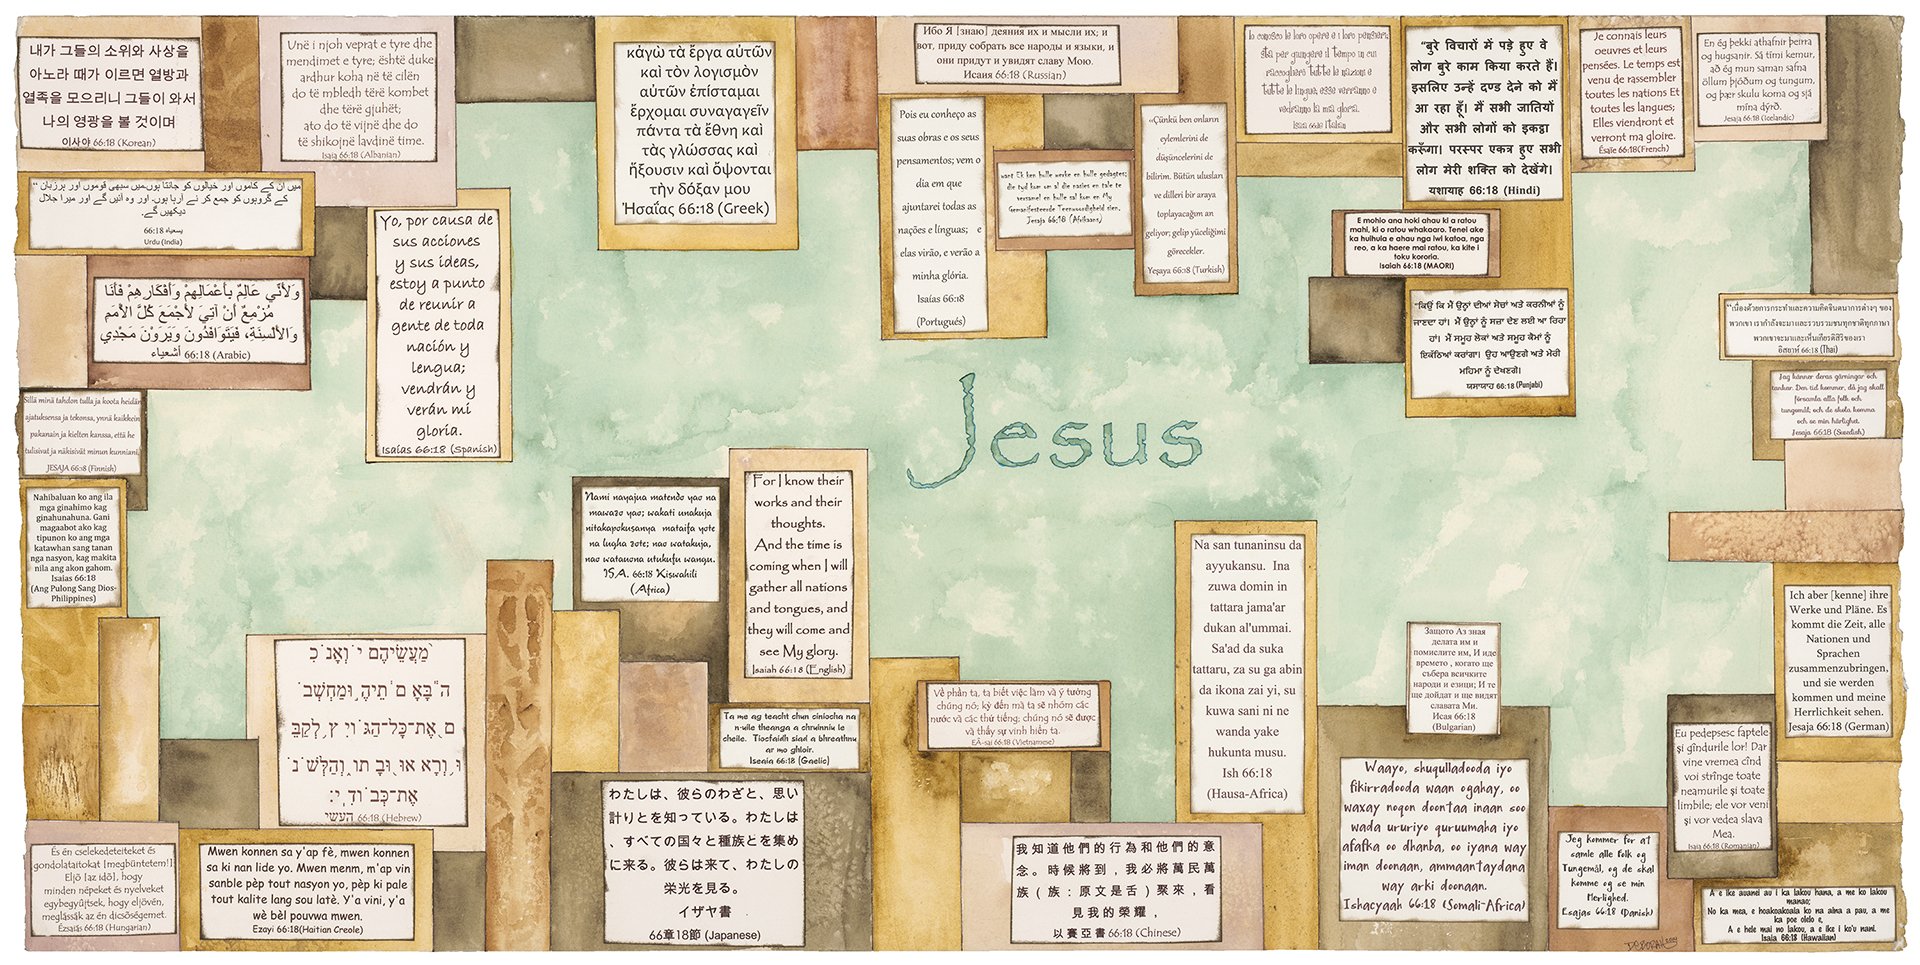 내가 그들의 소위와 사상을
아노라 때가 이르면 열방과
열족을 모으리니 그들이 와서
나의 영광을 볼 것이며
이사야 66:18 (Korean)
Unë i njoh veprat e tyre dhe
mendimet e tyre; është duke
ardhur koha në të cilën
do të mbledh tërë kombet
dhe tërë gjuhët;
ato do të vijnë dhe do
të shikojnë lavdinë time.
Isaia 66:18 (Albanian)
κἀγὼ τὰ ἔργα αὐτῶν
καὶ τὸν λογισμὸν
αὐτῶν ἐπίσταμαι
ἔρχομαι συναγαγεῖν
πάντα τὰ ἔθνη καὶ
τὰς γλώσσας καὶ
ἥξουσιν καὶ ὄψονται
τὴν δόξαν μου
Ἠσαΐας 66:18 (Greek)
Ибо Я [знаю] деяния их и мысли их; и
вот, приду собрать все народы и языки, и
они придут и увидят славу Мою.
Исаия 66:18 (Russian)
Io conosco le loro opere e i loro pensieri;
sta per giungere il tempo in cui
raccoglierò tutte le nazioni e
tutte le lingue; esse verranno e
vedranno la mia gloria.
Isaia 66:18 Italian
“बुरे विचारों में पड़े हुए वे
लोग बुरे काम किया करते हैं।
इसलिए उन्हें दण्ड देने को मैं
आ रहा हूँ। मैं सभी जातियों
और सभी लोगों को इकट्ठा
करूँगा। परस्पर एकत्र हुए सभी
लोग मेरी शक्ति को देखेंगे।
यशायाह 66:18 (Hindi)
Je connais leurs
oeuvres et leurs
pensées. Le temps est
venu de rassembler
toutes les nations Et
toutes les langues;
Elles viendront et
verront ma gloire.
Ésaïe 66:18(French)
En ég þekki athafnir þeirra
og hugsanir. Sá tími kemur,
að ég mun saman safna
öllum þjóðum og tungum,
og þær skulu koma og sjá
mína dýrð.
Jesaja 66:18 (Icelandic)
میں ان کے کاموں اور خیالوں کو جانتا ہوں۔میں سبھی قوموں اور ہرزبان “
کے گروہوں کو جمع کر نے آرہا ہوں۔ اور وہ آئیں گے اور میرا جلال
دیکھیں گے۔
یسعیاہ 66:18
Urdu (India)
Yo, por causa de
sus acciones
y sus ideas,
estoy a punto
de reunir a
gente de toda
nación y
lengua;
vendrán y
verán mi
gloria.
Isaías 66:18 (Spanish)
Pois eu conheço as
suas obras e os seus
pensamentos; vem o
dia em que
ajuntarei todas as
nações e línguas; e
elas virão, e verão a
minha glória.
Isaías 66:18
(Portugués)
want Ek ken hulle werke en hulle gedagtes;
die tyd kom om al die nasies en tale te
versamel en hulle sal kom en My
Gemanifesteerde Teenwoordigheid sien.
Jesaja 66:18 (Afrikaans)
«Çünkü ben onların
eylemlerini de
düşüncelerini de
bilirim. Bütün ulusları
ve dilleri bir araya
toplayacağım an
geliyor; gelip yüceliğimi
görecekler.
Yeşaya 66:18 (Turkish)
E mohio ana hoki ahau ki a ratou
mahi, ki o ratou whakaaro. Tenei ake
ka huihuia e ahau nga iwi katoa, nga
reo, a ka haere mai ratou, ka kite i
toku kororia.
Isaiah 66:18 (MAORI)
وَلأَنِّي عَالِمٌ بِأَعْمَالِهِمْ وَأَفْكَارِهِمْ فَأَنَا
مُزْمِعٌ أَنْ آتِيَ لأَجْمَعَ كُلَّ الأُمَمِ
وَالأَلْسِنَةِ، فَيَتَوَافَدُونَ وَيَرَوْنَ مَجْدِي
أشعياء 66:18 (Arabic)
“ਕਿਉਂ ਕਿ ਮੈਂ ਉਨ੍ਹਾਂ ਦੀਆਂ ਸੋਚਾਂ ਅਤੇ ਕਰਨੀਆਂ ਨੂੰ
ਜਾਣਦਾ ਹਾਂ। ਮੈਂ ਉਨ੍ਹਾਂ ਨੂੰ ਸਜ਼ਾ ਦੇਣ ਲਈ ਆ ਰਿਹਾ
ਹਾਂ। ਮੈਂ ਸਮੂਹ ਲੋਕਾਂ ਅਤੇ ਸਮੂਹ ਕੌਮਾਂ ਨੂੰ
ਇਕੱਠਿਆਂ ਕਰਾਂਗਾ। ਉਹ ਆਉਣਗੇ ਅਤੇ ਮੇਰੀ
ਮਹਿਮਾ ਨੂੰ ਦੇਖਣਗੇ।
ਯਸਾਯਾਹ 66:18 (Punjabi)
“เนื่องด้วยการกระทำและความคิดจินตนาการต่างๆ ของ
พวกเขา เรากำลังจะมาและรวบรวมชนทุกชาติทุกภาษา
พวกเขาจะมาและเห็นเกียรติสิริของเรา
อิสยาห์ 66:18 (Thai)
Jag känner deras gärningar och
tankar. Den tid kommer, då jag skall
församla alla folk och
tungomål; och de skola komma
och se min härlighet.
Jesaja 66:18 (Swedish)
Sillä minä tahdon tulla ja koota heidän
ajatuksensa ja tekonsa, ynnä kaikkein
pakanain ja kielten kanssa, että he
tulisivat ja näkisivät minun kunniani.
JESAJA 66:8 (Finnish)
Jesus
Nahibaluan ko ang ila
mga ginahimo kag
ginahunahuna. Gani
magaabot ako kag
tipunon ko ang mga
katawhan sang tanan
nga nasyon, kag makita
nila ang akon gahom.
Isaias 66:18
(Ang Pulong Sang Dios-
Philippines)
Nami nayajua matendo yao na
mawazo yao; wakati unakuja
nitakapokusanya mataifa yote
na lugha zote; nao watakuja,
nao watauona utukufu wangu.
ISA. 66:18 Kiswahili
(Africa)
For I know their
works and their
thoughts.
And the time is
coming when I will
gather all nations
and tongues, and
they will come and
see My glory.
Isaiah 66:18 (English)
Na san tunaninsu da
ayyukansu. Ina
zuwa domin in
tattara jama'ar
dukan al'ummai.
Sa'ad da suka
tattaru, za su ga abin
da ikona zai yi, su
kuwa sani ni ne
wanda yake
hukunta musu.
Ish 66:18
(Hausa-Africa)
Защото Аз зная
делата им и
помислите им, И иде
времето , когато ще
събера всичките
народи и езици; И те
ще дойдат и ще видят
славата Ми.
Исая 66:18
(Bulgarian)
Ich aber [kenne] ihre
Werke und Pläne. Es
kommt die Zeit, alle
Nationen und
Sprachen
zusammenzubringen,
und sie werden
kommen und meine
Herrlichkeit sehen.
Jesaja 66:18 (German)
66:18 (Hebrew)
Ta me ag teacht chun ciniocha na
n-uile theanga a chruinniu le
cheile. Tiocfaidh siad a bhreathnu
ar mo ghloir.
Iseaia 66:18 (Gaelic)
Về phần ta, ta biết việc làm và ý tưởng
chúng nó; kỳ đến mà ta sẽ nhóm các
nước và các thứ tiếng; chúng nó sẽ được
và thấy sự vinh hiển ta.
EÂ-sai 66:18 (Vietnamese)
Eu pedepsesc faptele
şi gîndurile lor! Dar
vine vremea cînd
voi strînge toate
neamurile şi toate
limbile; ele vor veni
şi vor vedea slava
Mea.
Isaia 66:18 (Romanian)
És én cselekedeteiteket és
gondolataitokat [megbüntetem!]
Eljő [az idő], hogy
minden népeket és nyelveket
egybegyűjtsek, hogy eljövén,
meglássák az én dicsőségemet.
Ézsaiás 66:18 (Hungarian)
Mwen konnen sa y'ap fè, mwen konnen
sa ki nan lide yo. Mwen menm, m'ap vin
sanble pèp tout nasyon yo, pèp ki pale
tout kalite lang sou latè. Y'a vini, y'a
wè bèl pouvwa mwen.
Ezayi 66:18(Haitian Creole)
わたしは、彼らのわざと、思い
計りとを知っている。わたしは
、すべての国々と種族とを集め
に来る。彼らは来て、わたしの
栄光を見る。
イザヤ書
66章18節 (Japanese)
我知道他們的行為和他們的意
念。時候將到，我必將萬民萬
族(族：原文是舌)聚來，看
見我的榮耀，
以賽亞書66:18 (Chinese)
Waayo, shuqulladooda iyo
fikirradooda waan ogahay, oo
waxay noqon doontaa inaan soo
wada ururiyo quruumaha iyo
afafka oo dhanba, oo iyana way
iman doonaan, ammaantaydana
way arki doonaan.
Ishacyaah 66:18 (Somali-Africa)
Jeg kommer for at
samle alle Folk og
Tungemål, og de skal
komme og se min
Herlighed.
Esajas 66:18 (Danish)
A e ike auanei au i ka lakou hana, a me ko lakou
manao;
No ka mea, e hoakoakoala ko na aina a pau, a me
ka poe olelo e,
A e hele mai no lakou, a e ike i ko'u nani.
Isaia 66:18 (Hawaiian)
DEBORAH